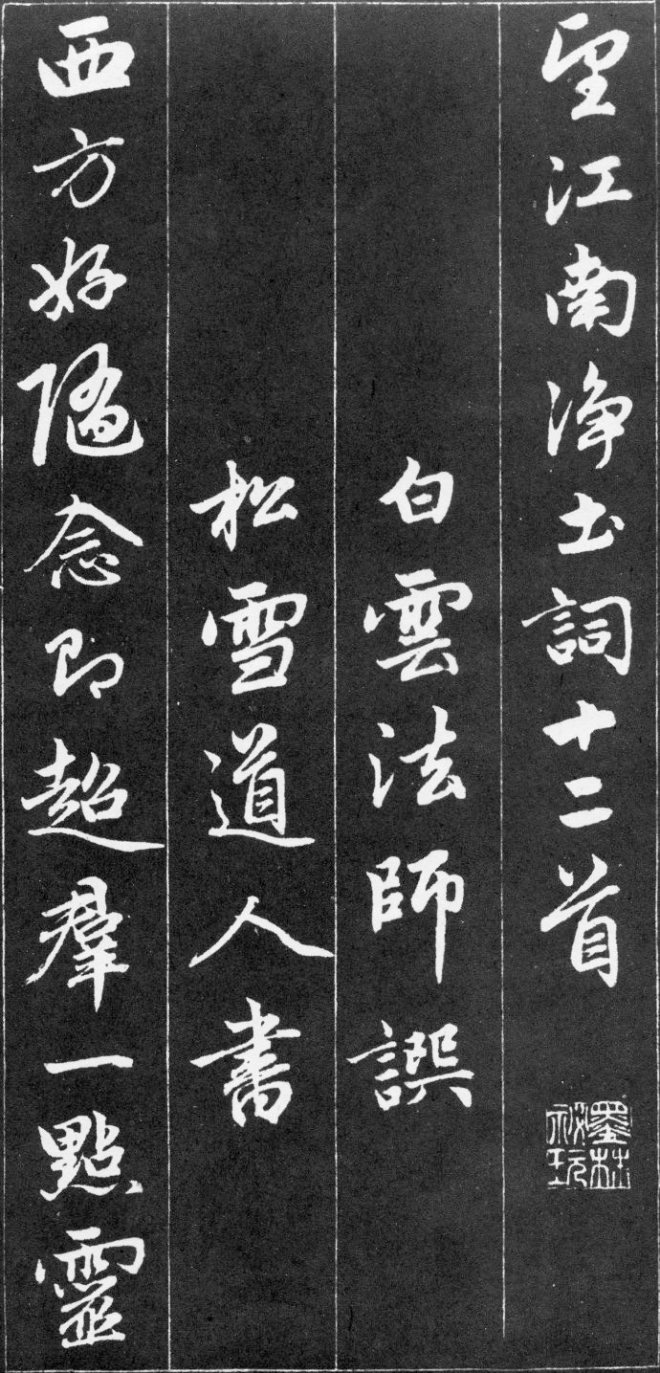 望江南淨土詞十二首
墨林祕玩
白雲法師譔
松雪道人書
西方好隨念即超羣一點靈